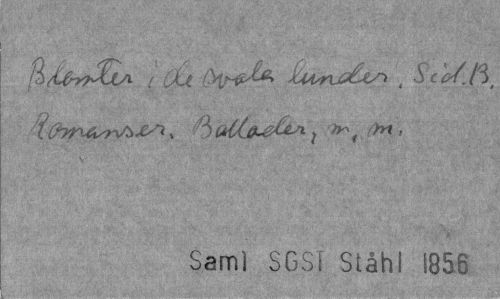 Blomster i de svala lunder. Sid. B.
Romanser. Ballader, m. m.
Saml SGST Ståhl 1856